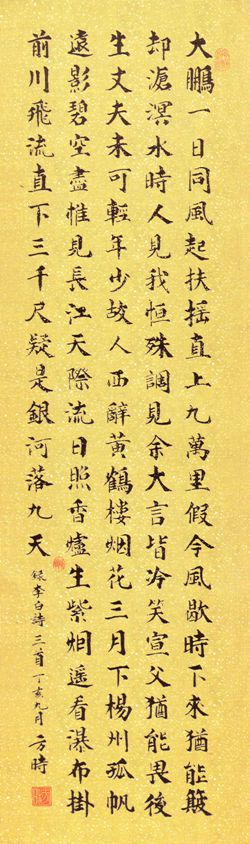 大鵬一日同風起扶搖直上九萬里假令風歇時下來猶能簸
却滄溟水時人見我恒殊調見余大言皆冷笑宣父猶能畏後
生丈夫未可輕年少故人西辭黃鶴樓烟花三月下楊州孤帆
遠影碧空盡惟見長江天際流日照香爐生紫烟遥看瀑布掛
前川飛流直下三千尺疑是銀河落九天
錄李白詩三首丁亥九月方時